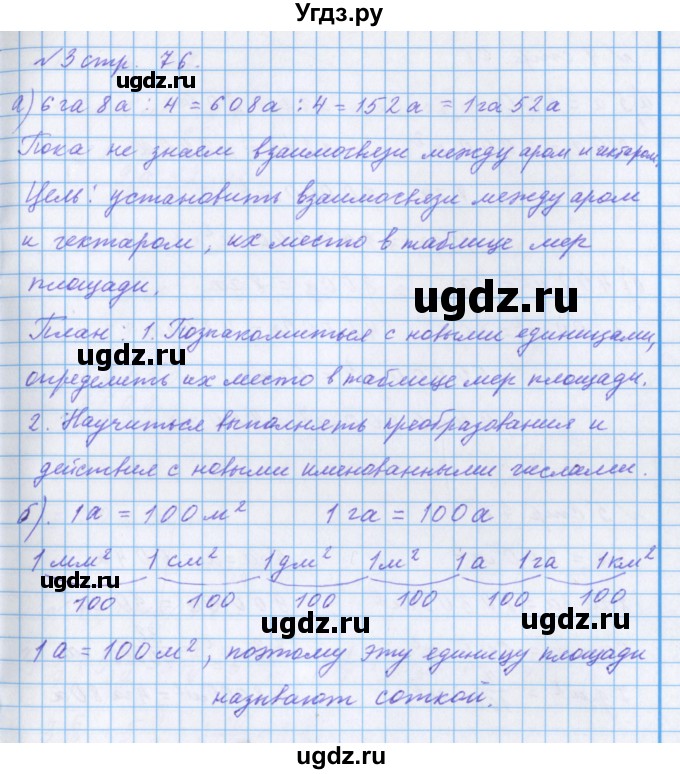 Угдз.ру
№3 стр. 76.
ugdz.ru
ugdz.ru
а) 6га 8а : 4 = 608а : 4 = 152а = 1га 52а
Пока не знаем взаимосвязи между аром и гектаром.
Цель: установить взаимосвязи между аром
и гектаром, их место в таблице мер
площади.
ugdz.ru
План: 1. Познакомиться с новыми единицами,
ugdz.ru
определить их место в таблице мер площади.
2. Научиться выполнять преобразования и
действия с новыми именованными числами.
б). 1а = 100м² 1га = 100а
1мм² 1см² 1дм² 1м² 1а 1га 1км²
ugdz.ru
100 100 100 100 100 100
ugdz.ru
ugdz.ru
1а = 100м², поэтому эту единицу площади
называют соткой.
ugdz.ru